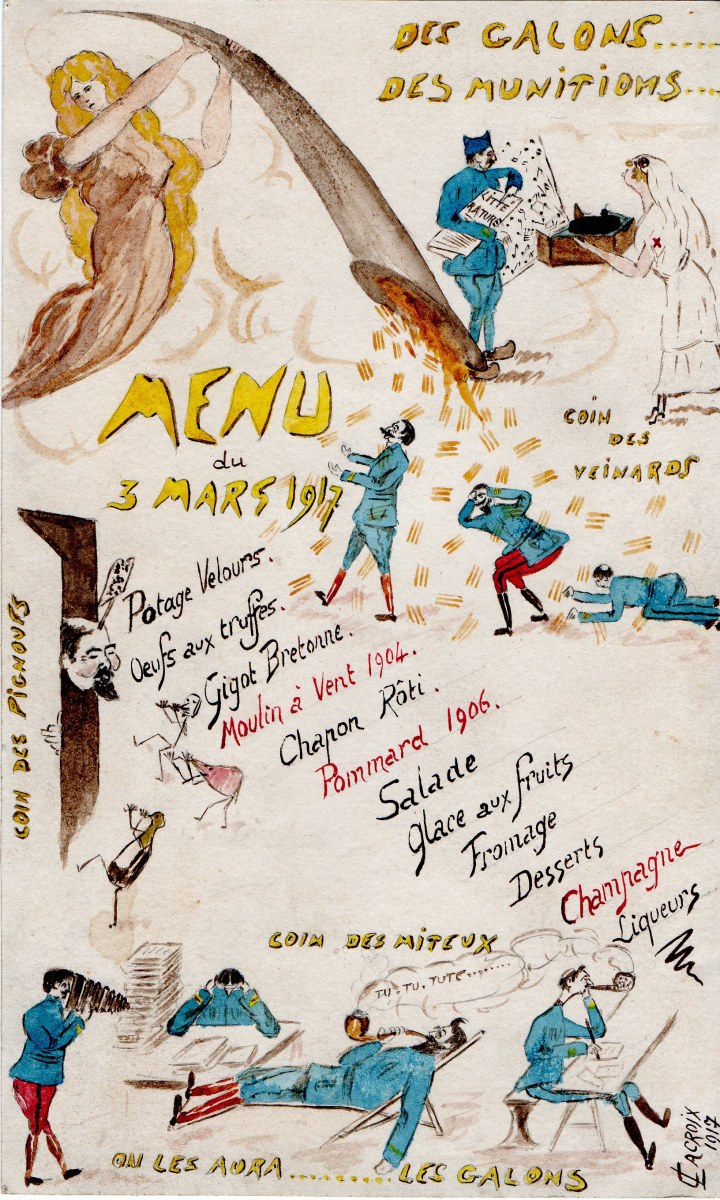 DES GALONS....
DES MUNITIONS...
LITTE
RATURE
MENU
du
3 MARS 1917
COIN
DES
VEINARDS
COIN DES PIGNOUFS
Potage Velours.
Oeufs aux truffes.
Gigot Bretonne.
Moulin à Vent 1904.
Chapon Rôti.
Pommard 1906.
Salade
Glace aux fruits
Fromage
Desserts
Champagne
Liqueurs
COIN DES MITEUX
TU.TU.TUTE........
ON LES AURA.........LES GALONS
LACROIX
1917